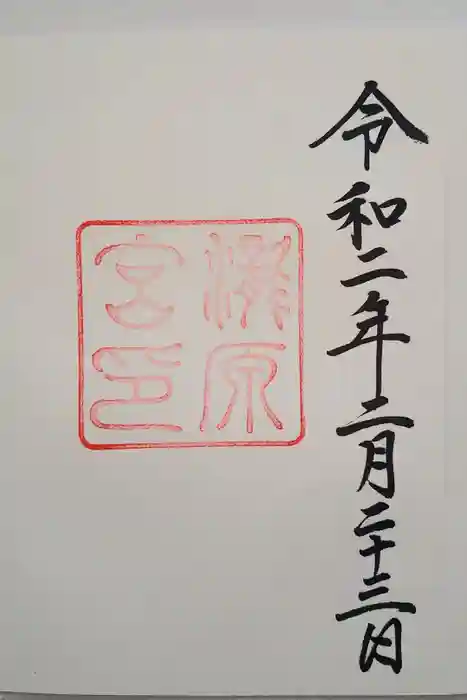 令和二年二月二十三日
原
宮印